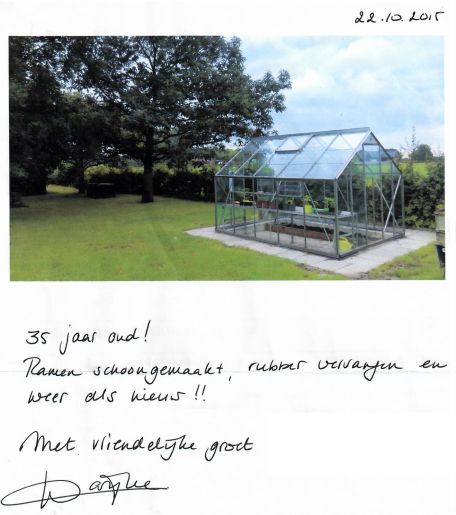 22.10.2015
35 jaar oud!
Ramen schoongemaakt, rubber vervangen en
weer als nieuw!!
Met vriendelijke groet